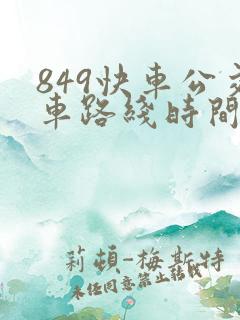 849快車公交
車路綫時間
莉頓-梅斯特
未任同意禁止轉載